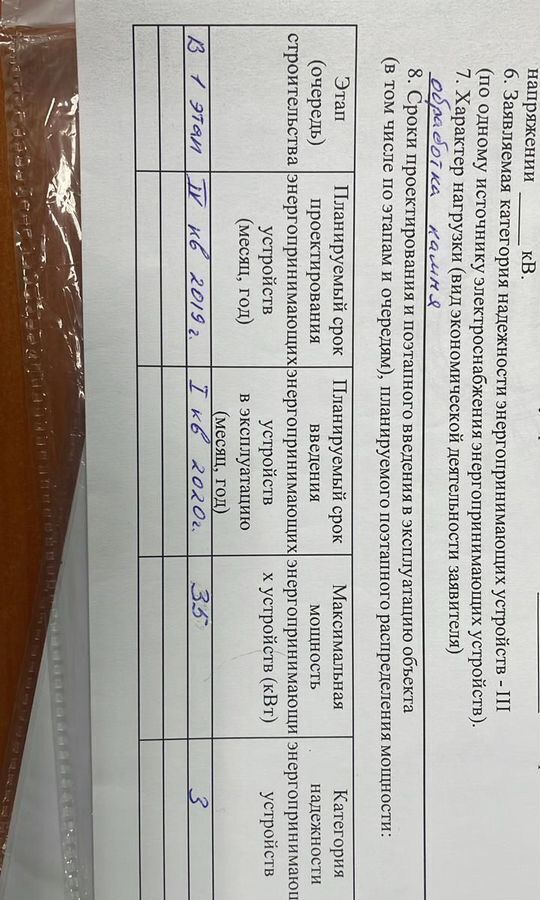 напряжении ______ кВ.
6. Заявляемая категория надежности энергопринимающих устройств - III
(по одному источнику электроснабжения энергопринимающих устройств).
7. Характер нагрузки (вид экономической деятельности заявителя)
обработка камня
8. Сроки проектирования и поэтапного введения в эксплуатацию объекта
(в том числе по этапам и очередям), планируемого поэтапного распределения мощности:
Этап
(очередь)
строительства
Планируемый срок
проектирования
энергопринимающих
устройств
(месяц, год)
Планируемый срок
введения
энергопринимающих
устройств
в эксплуатацию
(месяц, год)
Максимальная
мощность
энергопринимающи
х устройств (кВт)
Категория
надежности
энергопринимающ
устройств
В 1 этап
IV кв 2019 г.
I кв 2020 г.
35
3